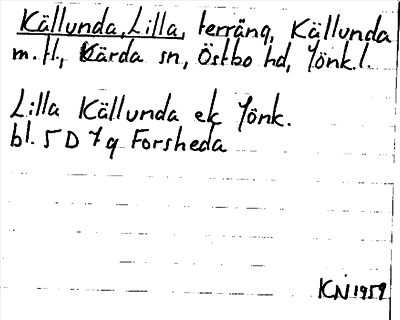 Källunda, Lilla, terräng, Källunda
m.fl., Kärda sn, Östbo hd, Jönk.l.
Lilla Källunda ek Jönk.
bl. 5 D 7 g Forsheda
KN 1959